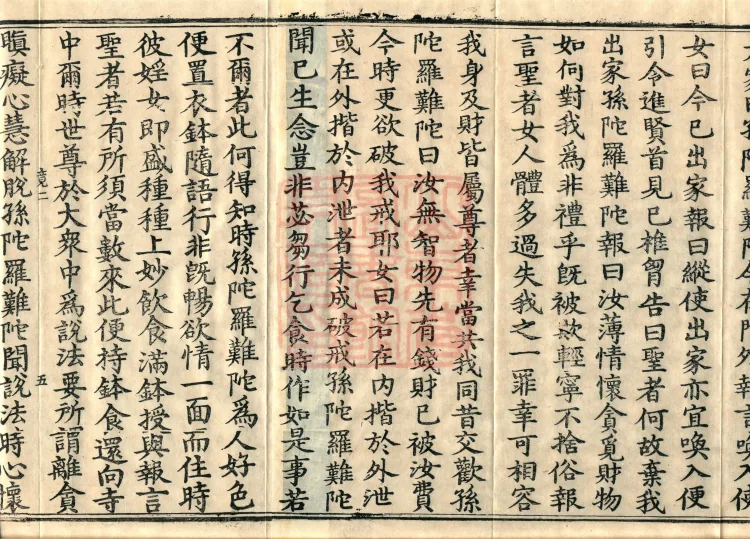 女曰今已出家報曰縱使出家亦宜喚入便
引令進賢首見已椎胷告曰聖者何故棄我
出家孫陀羅難陀報曰汝薄情懷貪覓財物
如何對我爲非禮乎旣被欺輕寧不捨俗報
言聖者女人體多過失我之一罪幸可相容
我身及財皆屬尊者幸當共我同昔交歡孫
陀羅難陀曰汝無智物先有錢財已被汝費
今時更欲破我戒耶女曰若在內揩於外泄
或在外揩於內泄者未成破戒孫陀羅難陀
聞已生念豈非苾芻行乞食時作如是事若
不爾者此何得知時孫陀羅難陀爲人好色
便置衣鉢隨語行非旣暢欲情一面而住時
彼婬女卽盛種種上妙飲食滿鉢授與報言
聖者若有所須當數來此便持鉢食還向寺
中爾時世尊於大衆中爲說法要所謂離貪
竟二 五
瞋癡心慧解脫孫陀羅難陀聞說法時心懷